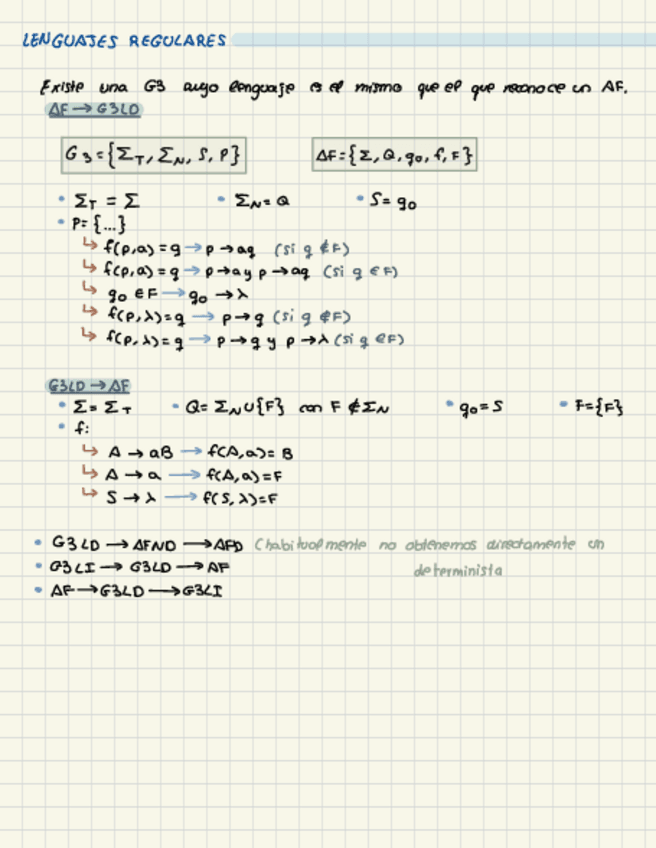 LENGUAJES REGULARES
Existe una G3 cuyo lenguaje es el mismo que el que reconoce un AF.
AF → G3LD
G3={Σ_T, Σ_N, S, P} AF={Σ, Q, q₀, f, F}
• Σ_T = Σ • Σ_N=Q • S=q₀
• P={...}
↳ f(p,a)=q → p→aq (si q ∉F)
↳ f(p,a)=q → p→a y p→aq (si q ∈F)
↳ q₀ ∈F → q₀ →λ
↳ f(p,λ)=q → p→q (si q ∉F)
↳ f(p,λ)=q → p→q y p→λ (si q ∈F)
G3LD → AF
• Σ=Σ_T • Q=Σ_N∪{F} con F ∉Σ_N • q₀=S • F={F}
• f:
↳ A → aB → f(A,a)=B
↳ A → a → f(A,a)=F
↳ S → λ → f(S,λ)=F
• G3LD → AFND → AFD (habitualmente no obtenemos directamente un
determinista
• G3LI → G3LD → AF
• AF → G3LD → G3LI